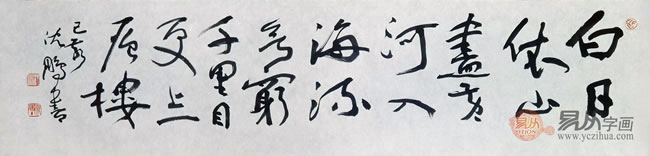 白日
依山
盡黄
河入
海流
欲窮
千里目
更上
一层樓
沈鹏书
易从字画
www.yczihua.com